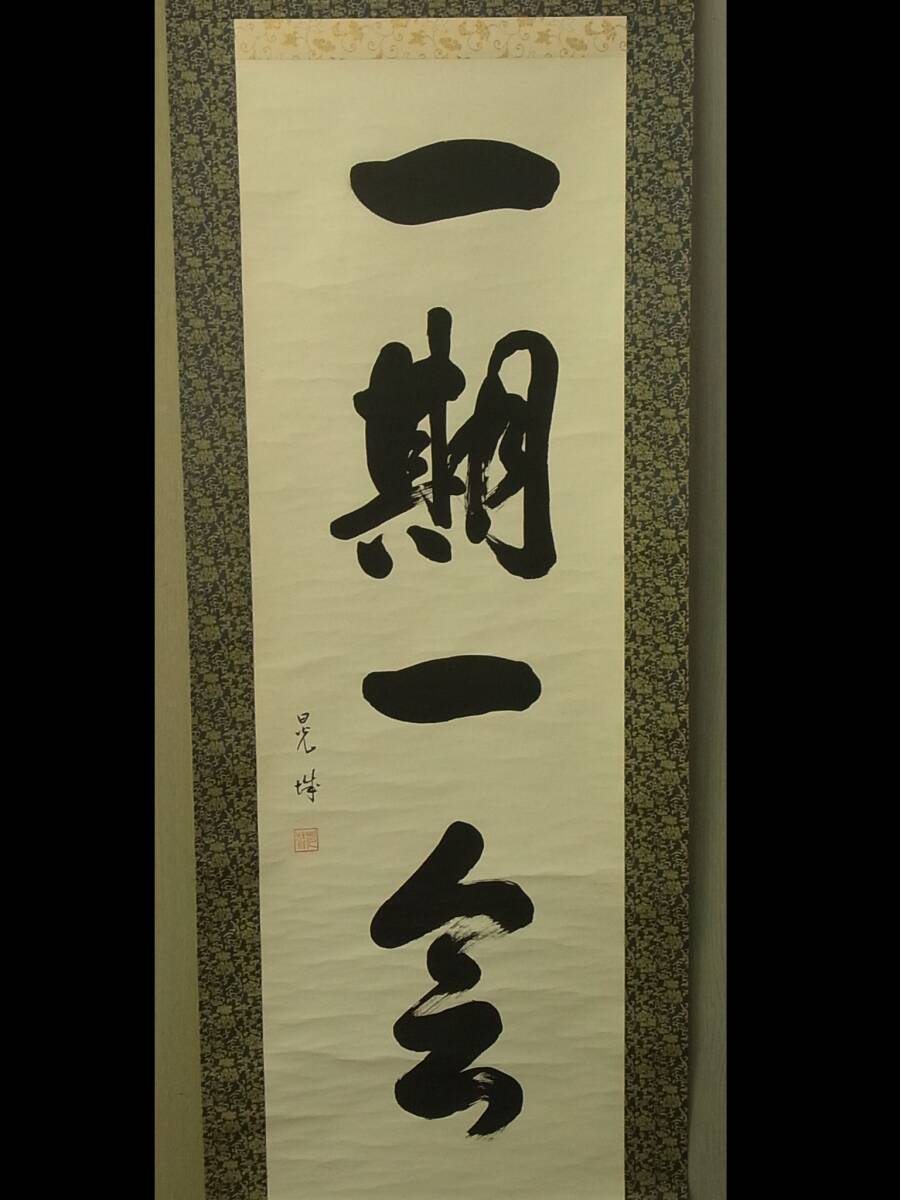 一期一会
晃城